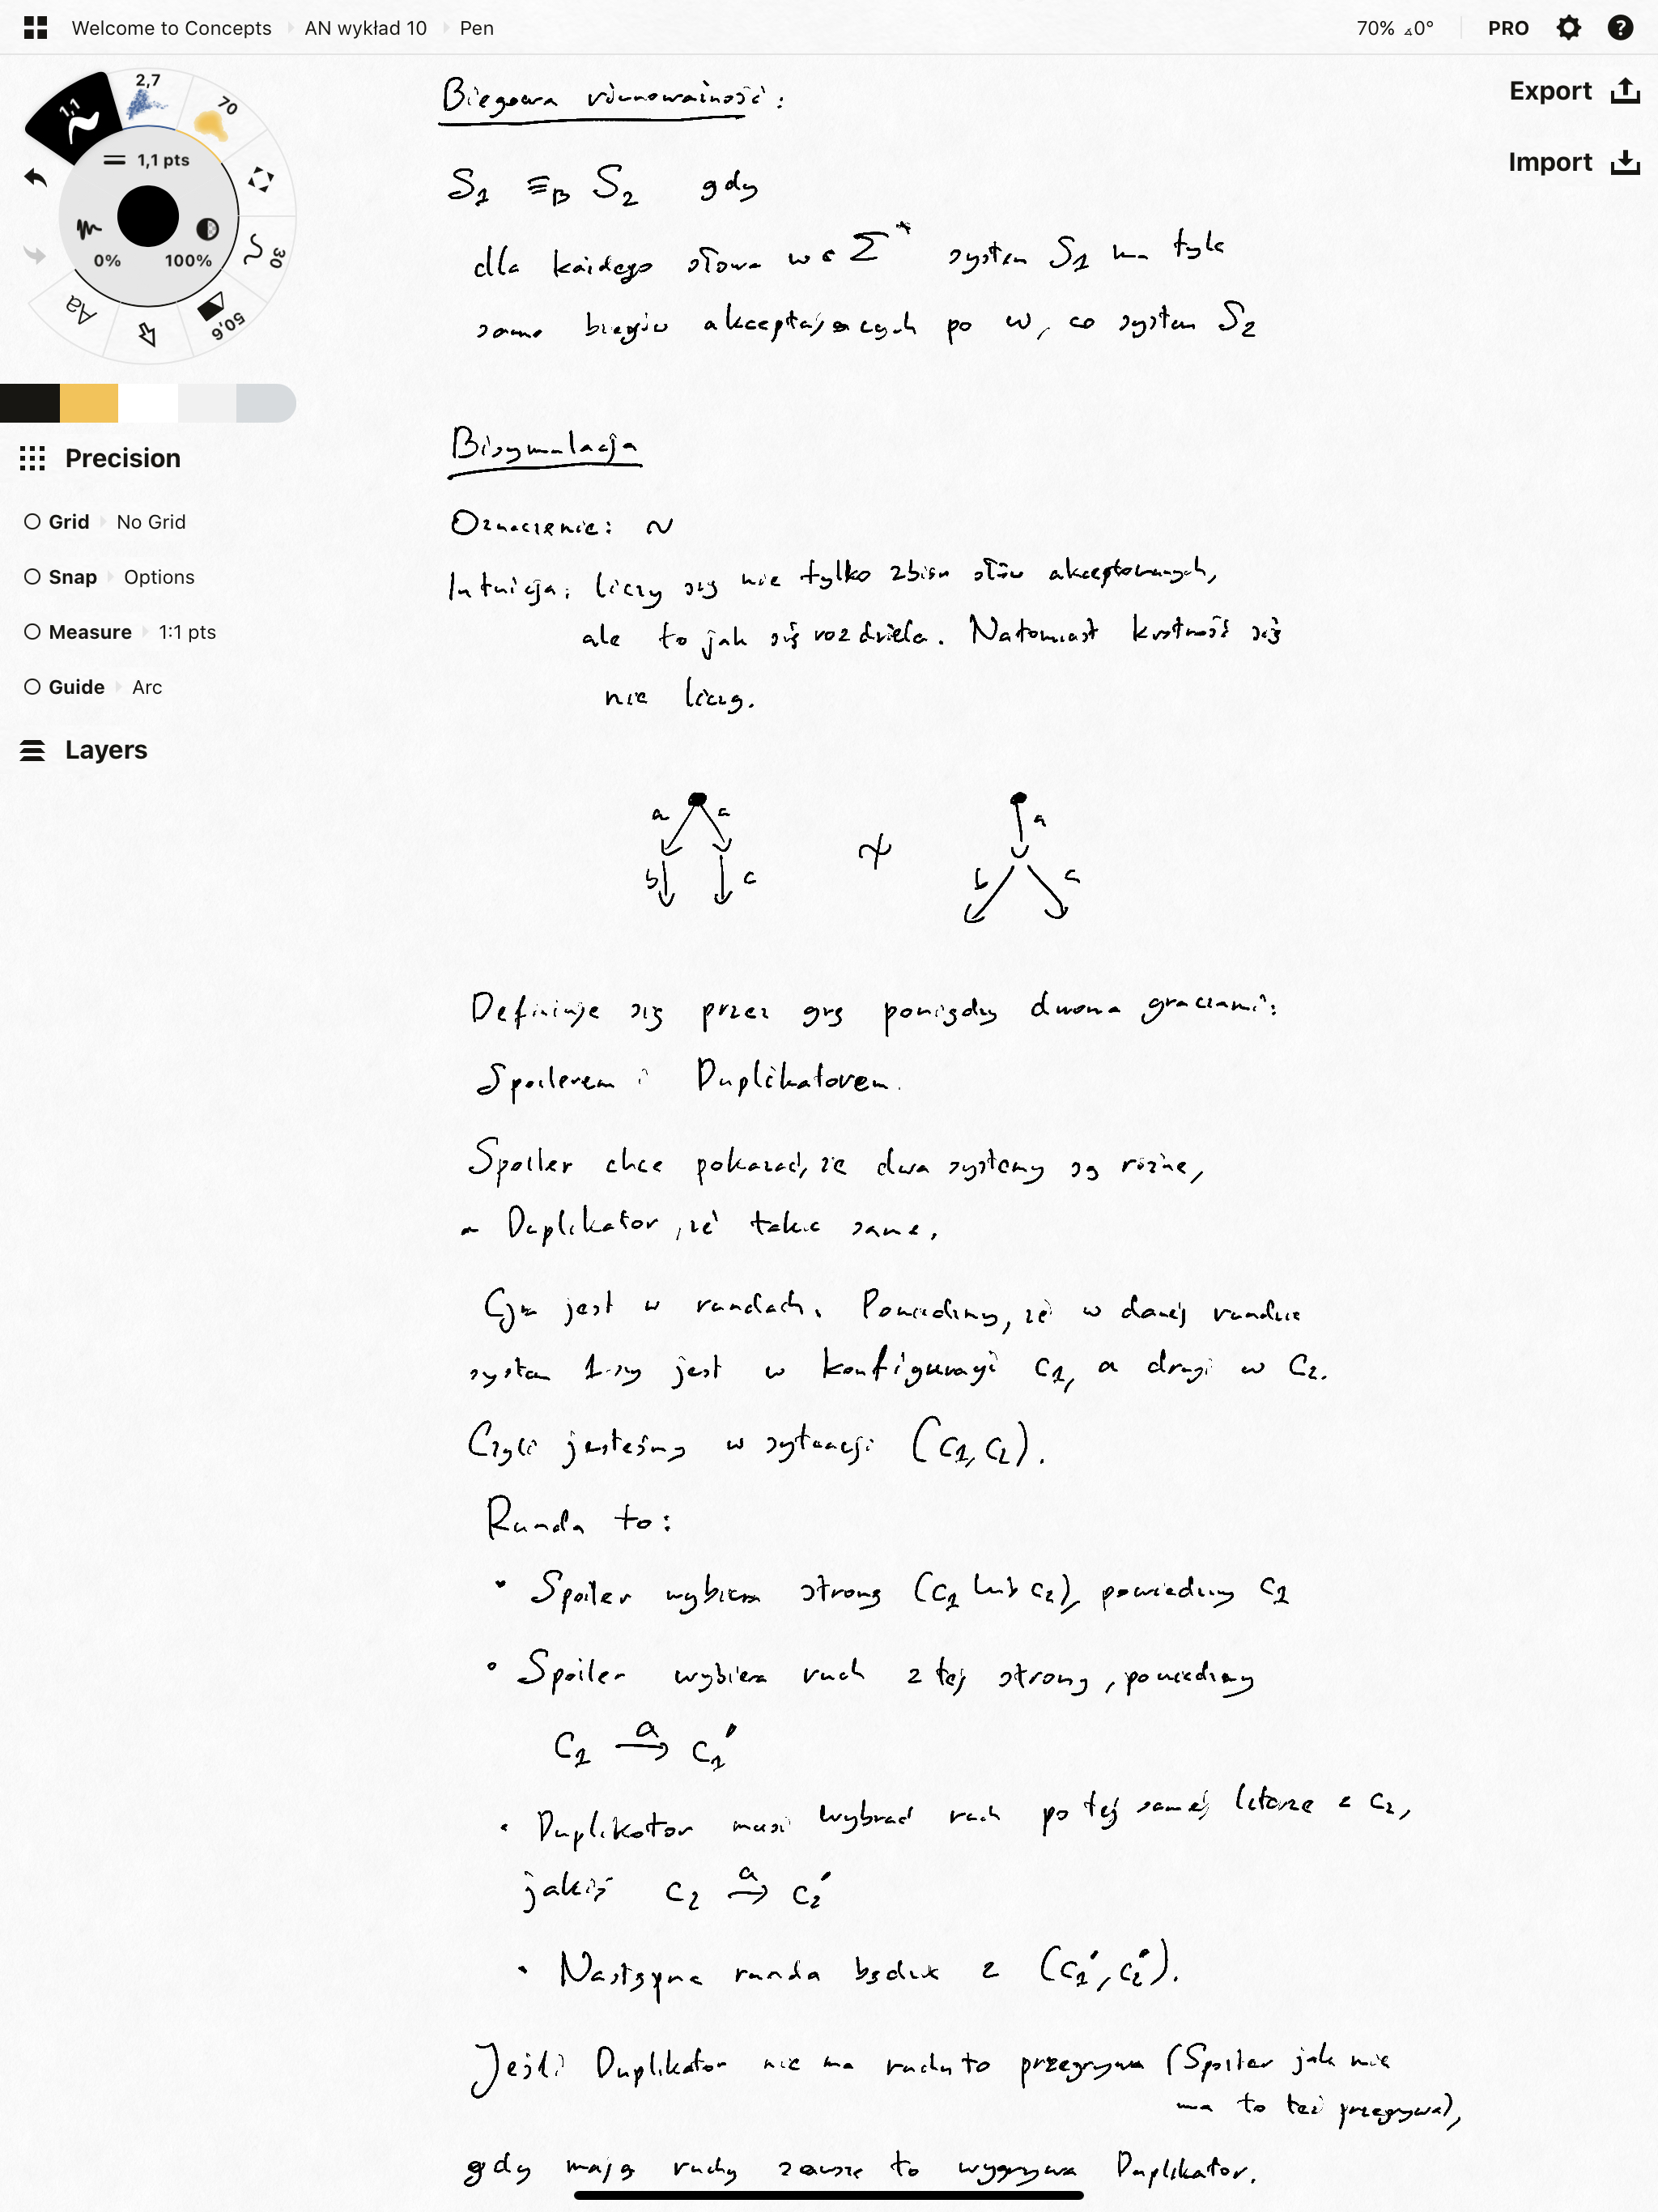 Welcome to Concepts AN wykład 10 Pen
70% ⊿0° PRO
Export
Import
1,1
2,7
70
1,1 pts
0% 100%
30
50,6
Aa
Precision
Grid No Grid
Snap Options
Measure 1:1 pts
Guide Arc
Layers
Biegowa równoważność:
S₁ ≡_B S₂ gdy
dla każdego słowa w ∈ Σ* system S₁ ma tyle
samo biegów akceptujących po w, co system S₂
Bisymulacja
Oznaczenie: ~
Intuicja: liczy się nie tylko zbiór słów akceptowanych,
ale to jak się rozdziela. Natomiast krotność się
nie liczy.
a a ≁ a
b c b c
Definiuje się przez grę pomiędzy dwoma graczami:
Spoilerem i Duplikatorem.
Spoiler chce pokazać, że dwa systemy są różne,
a Duplikator, że takie same.
Gra jest w rundach. Powiedzmy, że w danej rundzie
system 1-szy jest w konfiguracji c₁, a drugi w c₂.
Czyli jesteśmy w sytuacji (c₁, c₂).
Runda to:
• Spoiler wybiera stronę (c₁ lub c₂), powiedzmy c₁
• Spoiler wybiera ruch z tej strony, powiedzmy
c₁ →ᵃ c₁'
• Duplikator musi wybrać ruch po tej samej literze z c₂,
jakiś c₂ →ᵃ c₂'
• Następna runda będzie z (c₁', c₂').
Jeśli Duplikator nie ma ruchu to przegrywa (Spoiler jak nie
ma to też przegrywa),
gdy mają ruchy zawsze to wygrywa Duplikator.